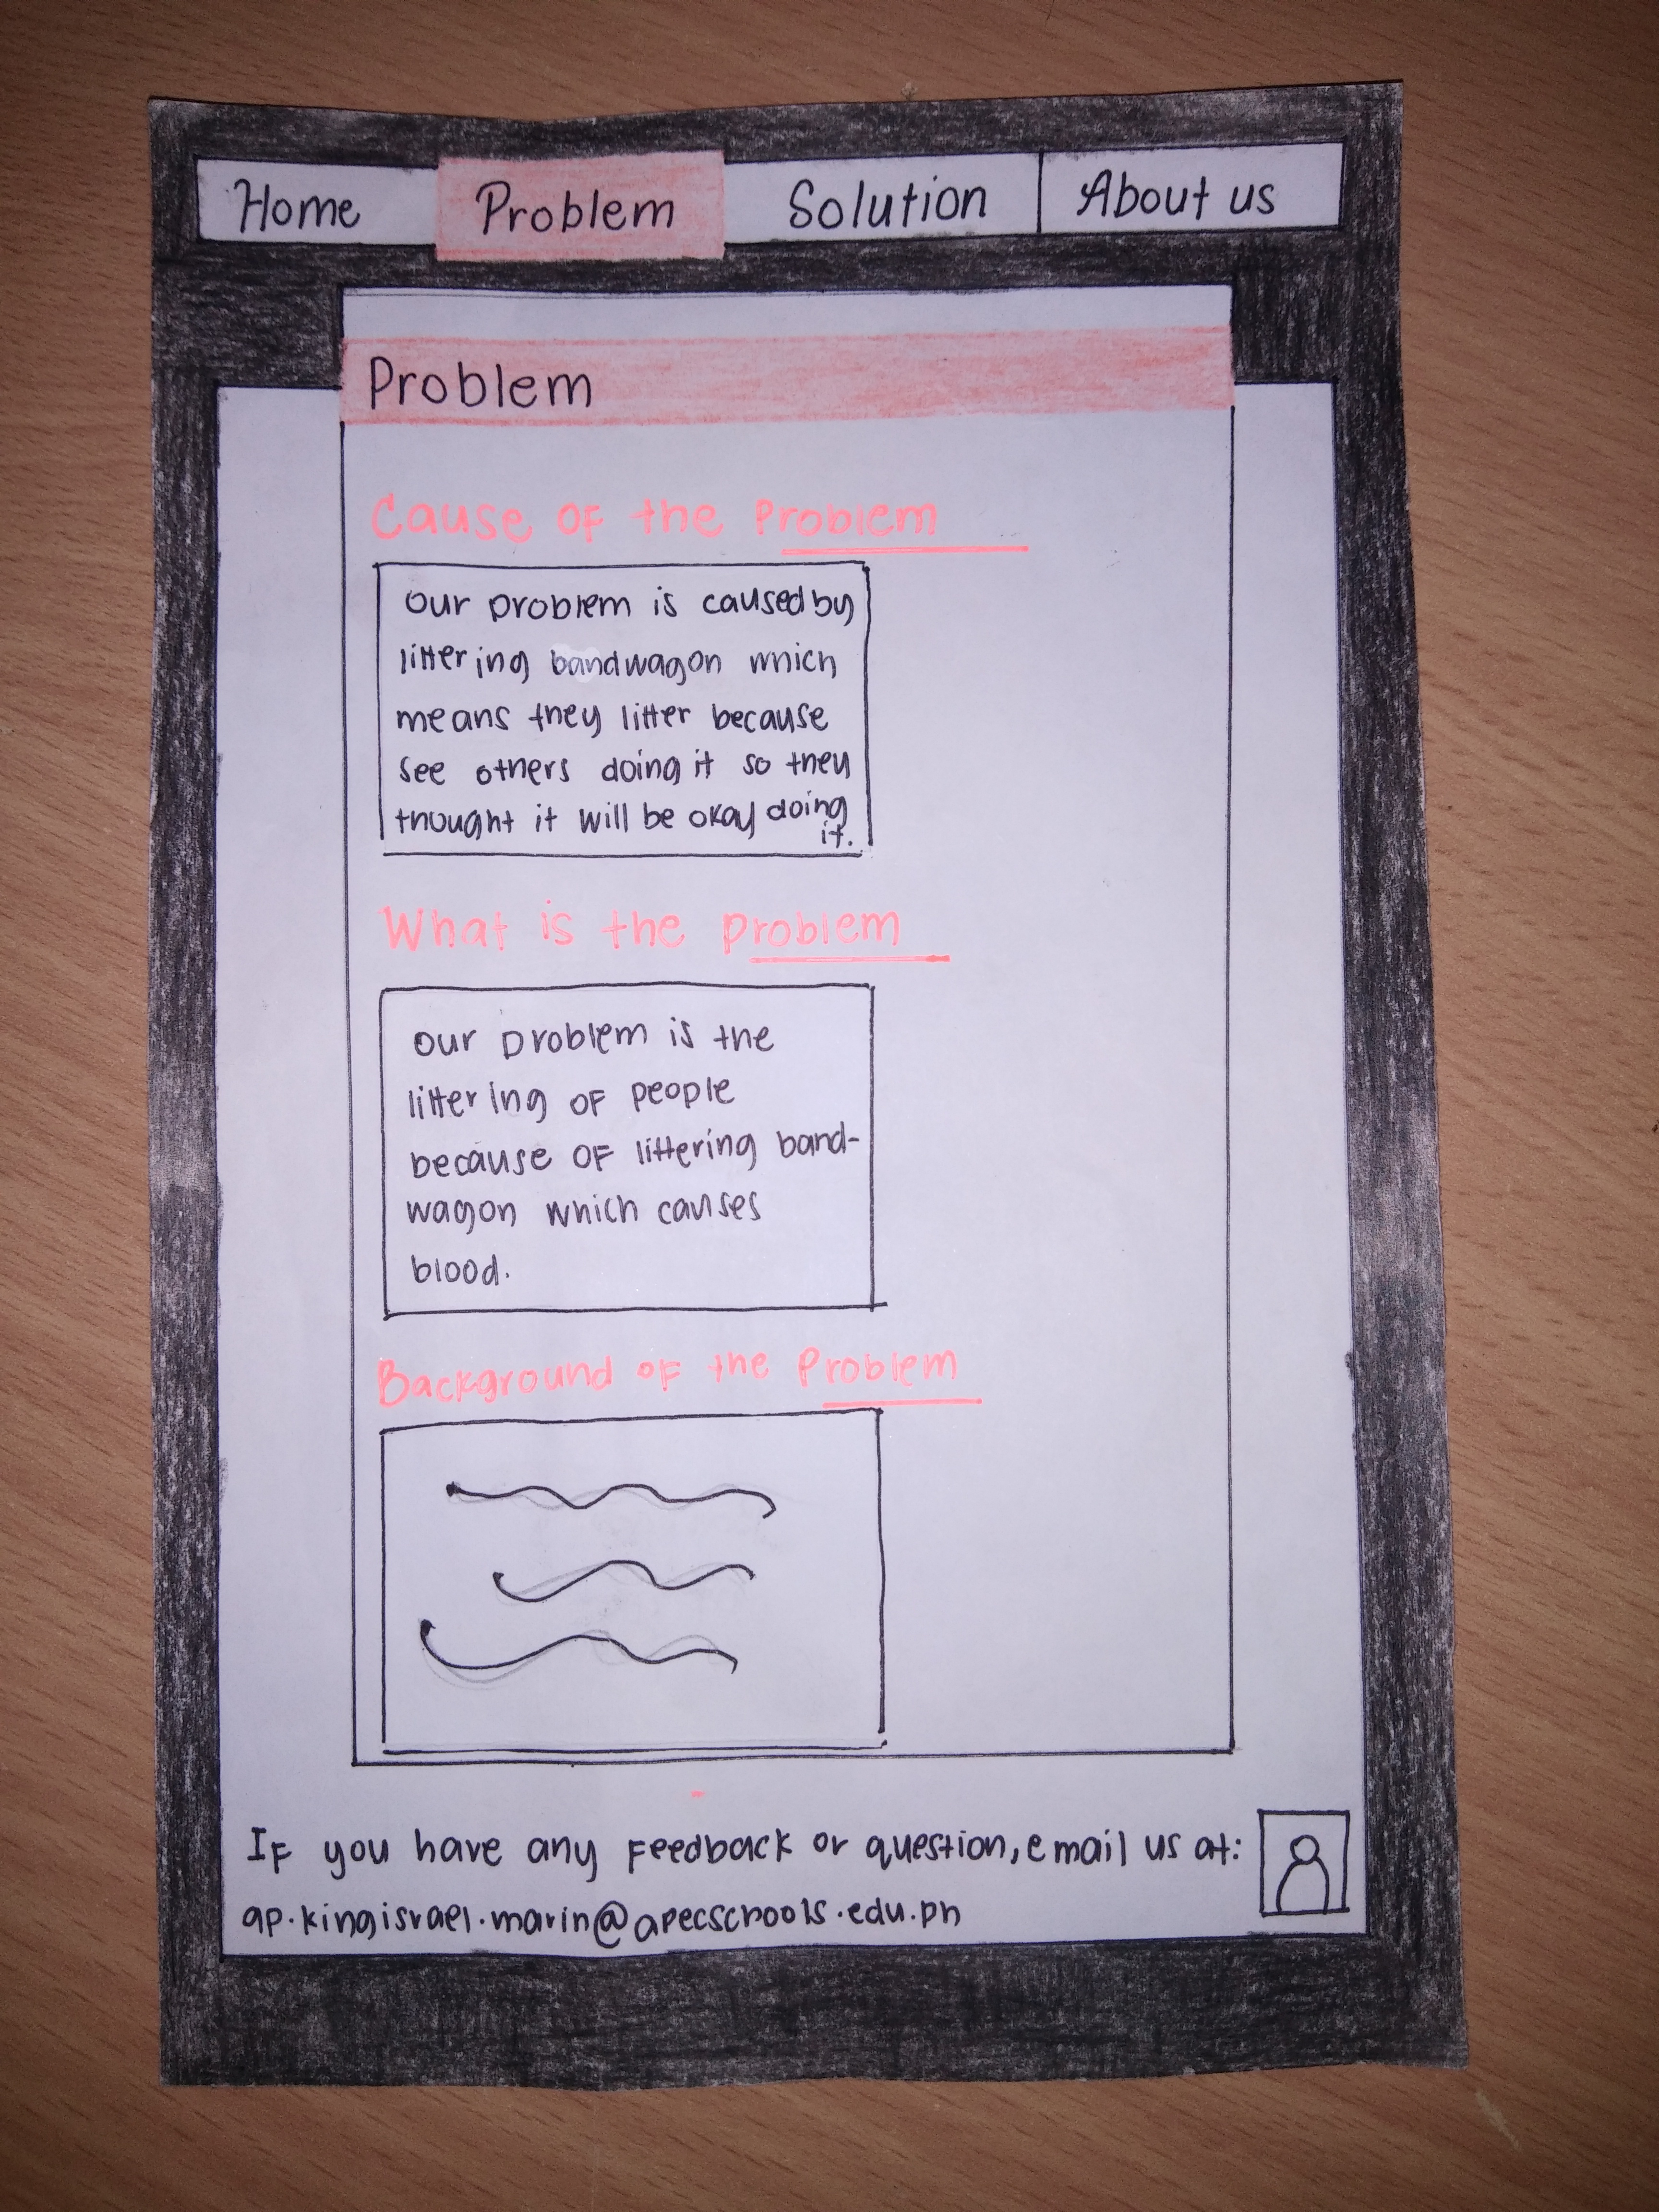 Home Problem Solution About us
Problem
Cause of the Problem
our problem is caused by
littering bandwagon which
means they litter because
see others doing it so they
thought it will be okay doing
it.
What is the problem
our problem is the
littering of people
because of littering band-
wagon which causes
blood.
Background of the Problem
If you have any Feedback or question, email us at:
ap.kingisrael.marin@apecschools.edu.ph